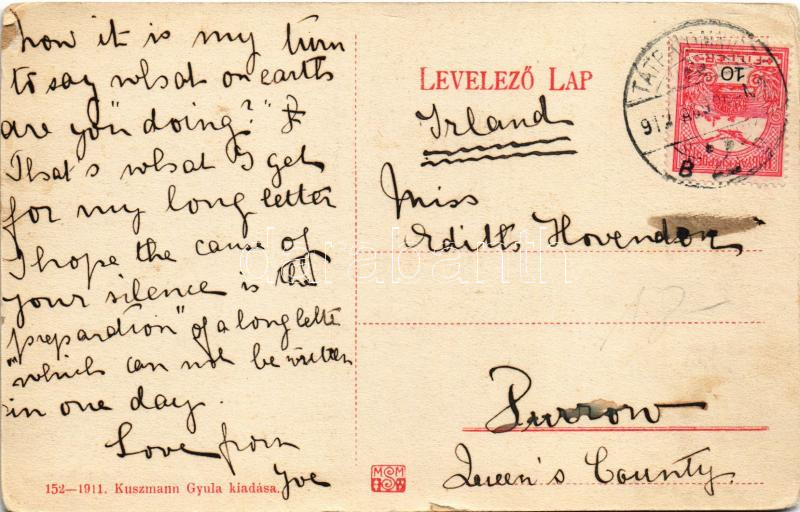 now it is my turn
to say what on earth
are you "doing?"
That's what I get
for my long letter
I hope the cause of
your silence is the
"preparation" of a long lette
"which can not be written
in one day.
Love from
Yve
152—1911. Kuszmann Gyula kiadása.
LEVELEZŐ LAP
Irland
Miss
Edith Hovendon
Durrow
Queen's County.
10
FILLÉR
912
B
darabanth